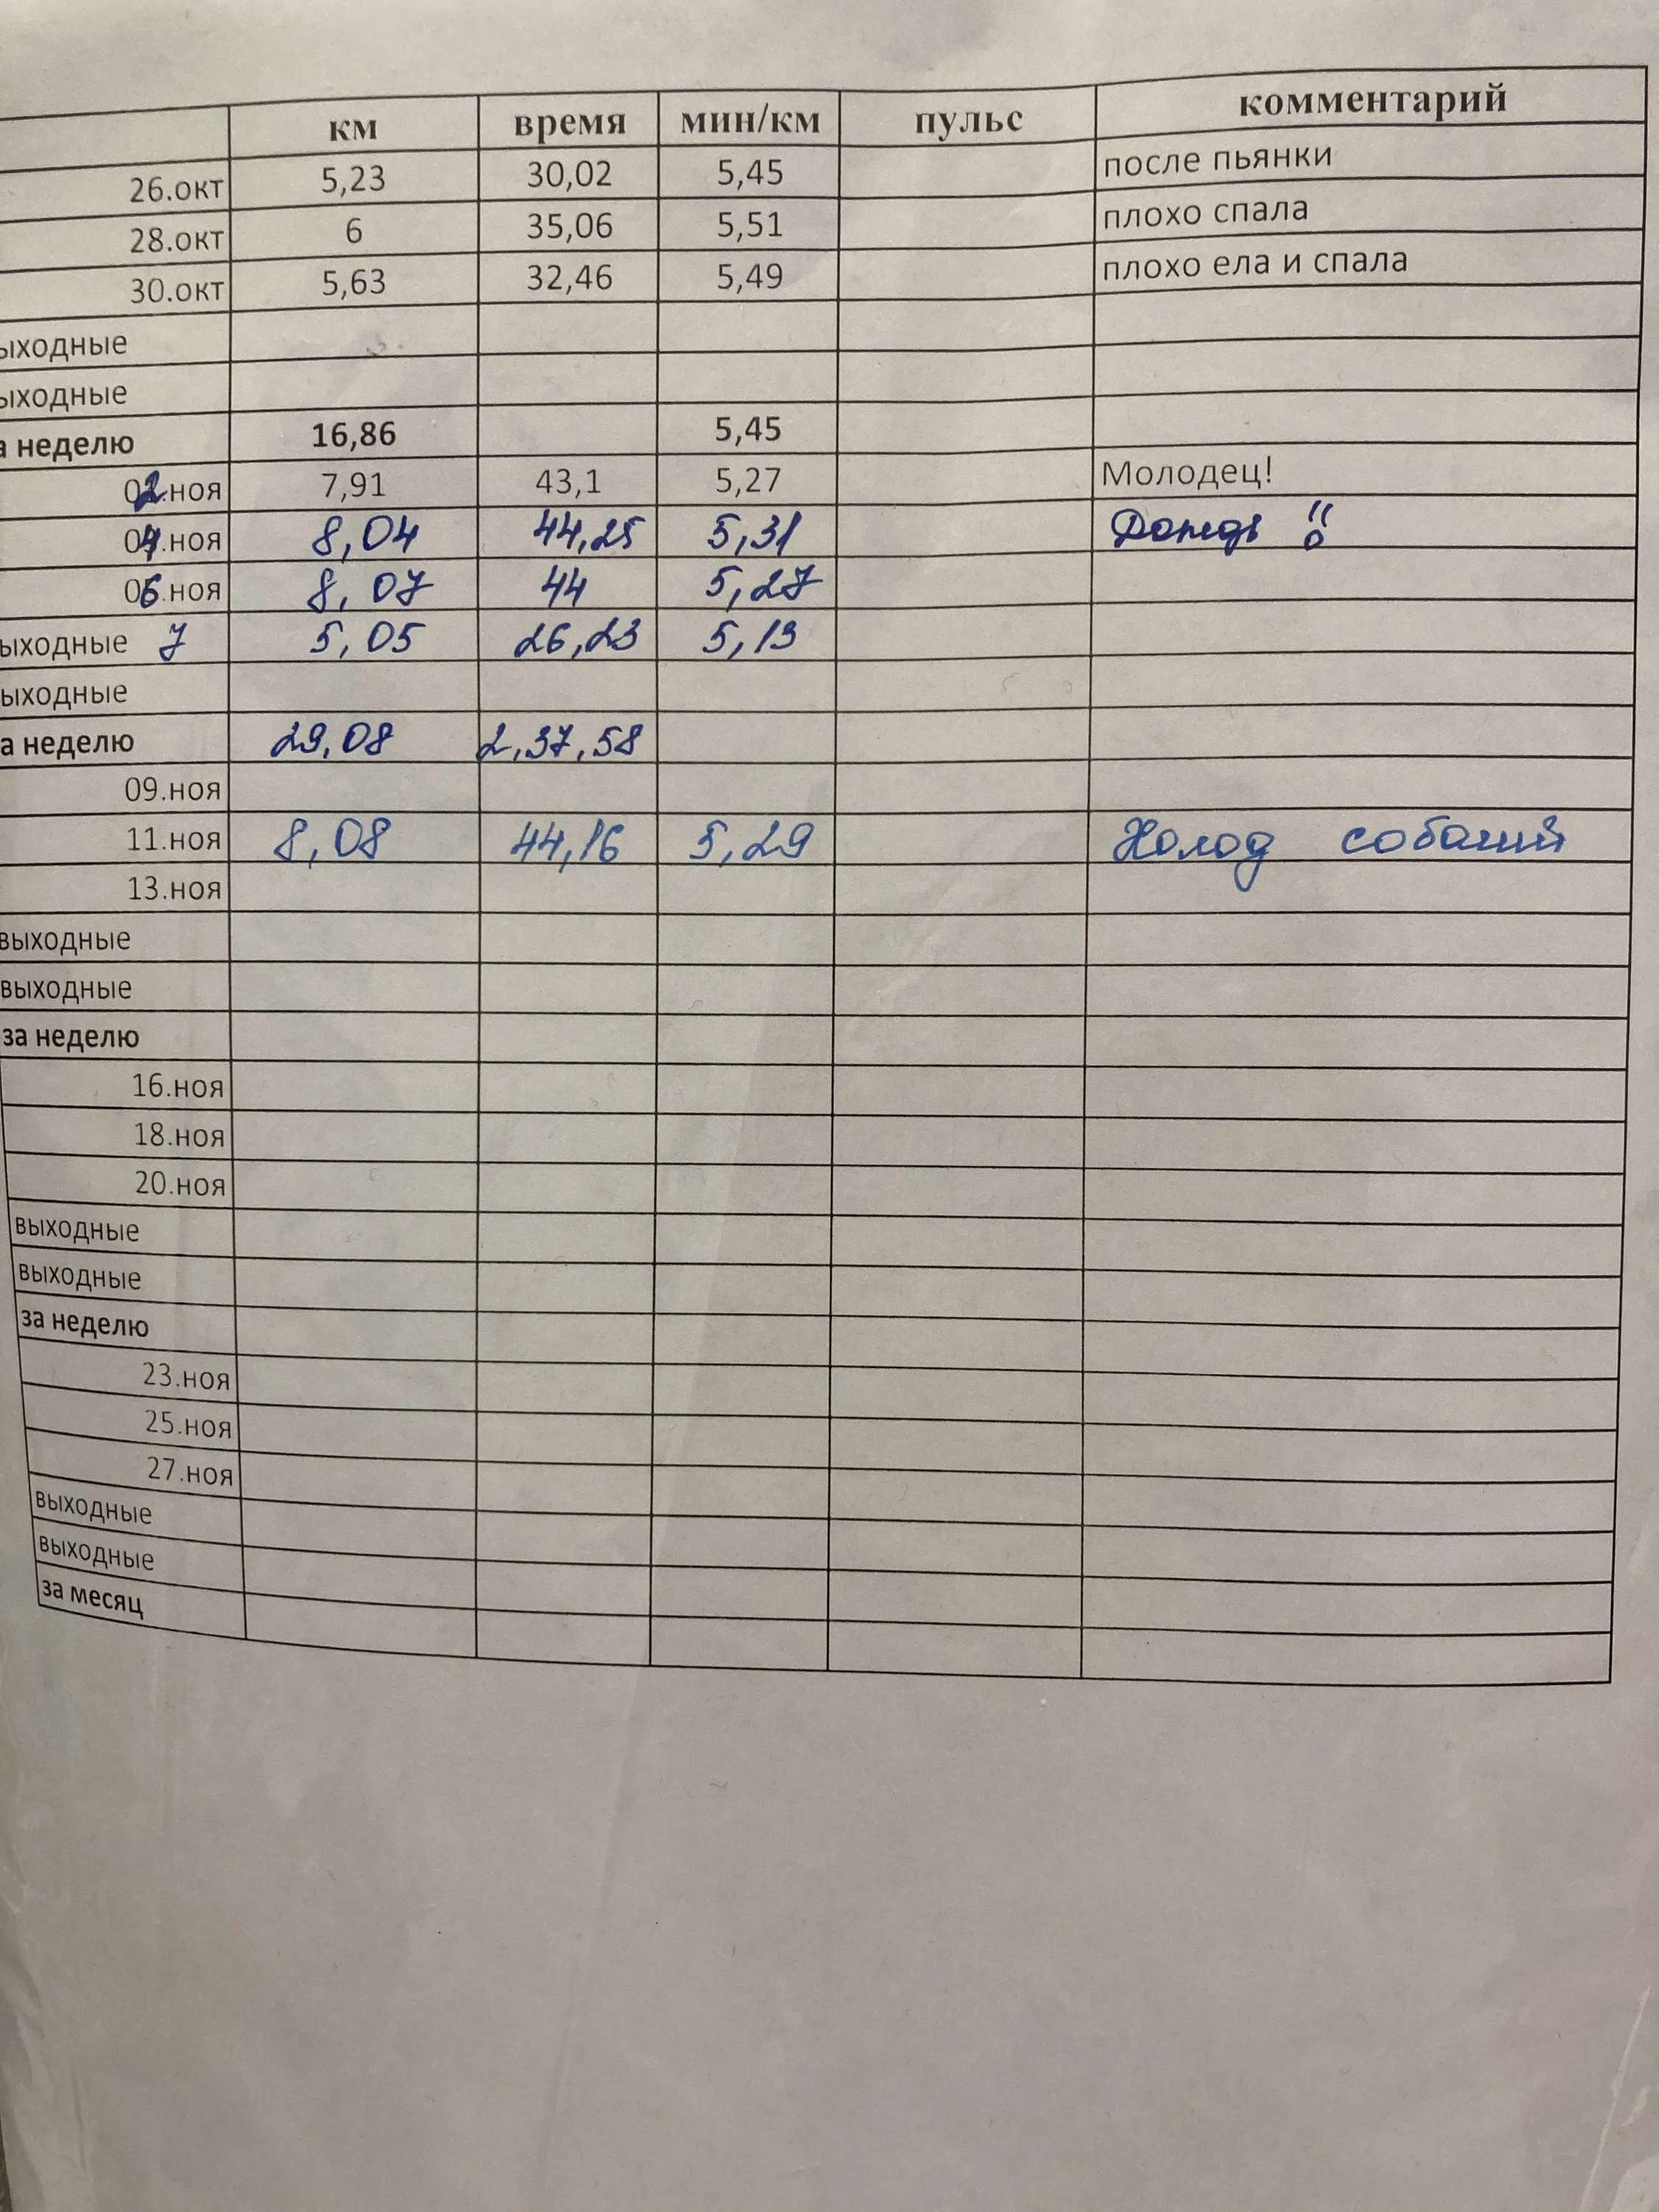 км время мин/км пульс комментарий
26.окт 5,23 30,02 5,45 после пьянки
28.окт 6 35,06 5,51 плохо спала
30.окт 5,63 32,46 5,49 плохо ела и спала
ыходные
ыходные
а неделю 16,86 5,45
02.ноя 7,91 43,1 5,27 Молодец!
04.ноя 8,04 44,25 5,31 Дождь !!
06.ноя 8,07 44 5,27
ыходные 7 5,05 26,23 5,13
ыходные
а неделю 29,08 2,37,58
09.ноя
11.ноя 8,08 44,16 5,29 Холод собачий
13.ноя
выходные
выходные
за неделю
16.ноя
18.ноя
20.ноя
выходные
выходные
за неделю
23.ноя
25.ноя
27.ноя
выходные
выходные
за месяц